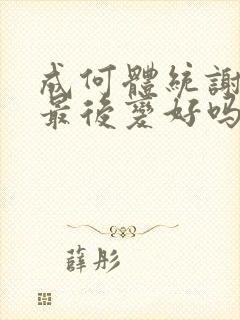 成何體統謝
最後變好嗎
薛彤